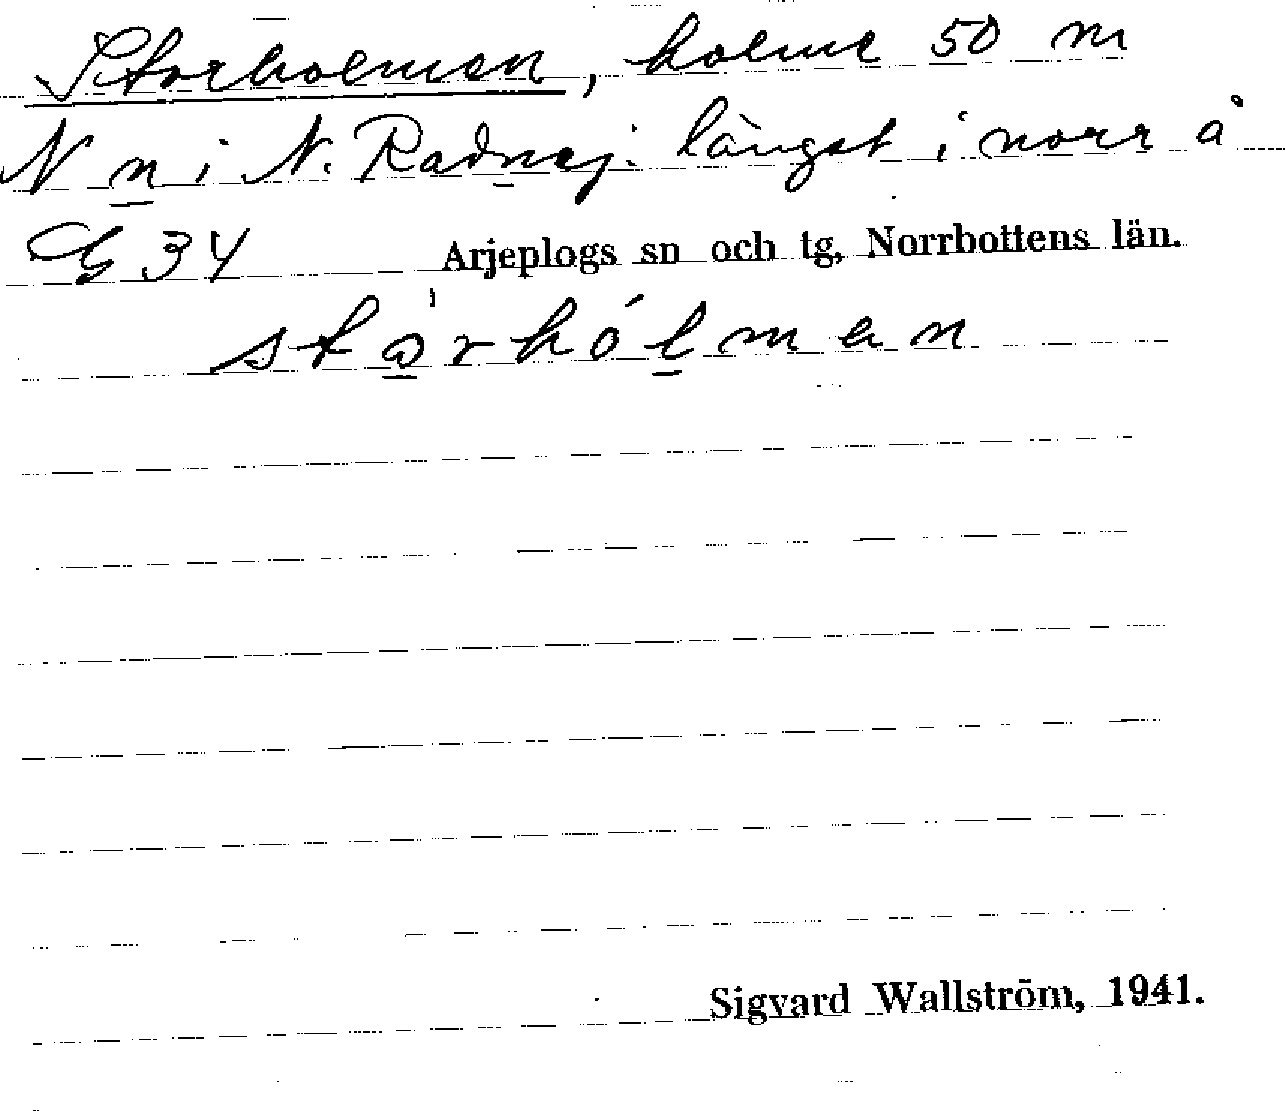 Storholmen, holme 50 m
N n i N. Radnej. längst i norr å
G 34 Arjeplogs sn och tg, Norrbottens län.
stə̀rhólmen
Sigvard Wallström, 1941.